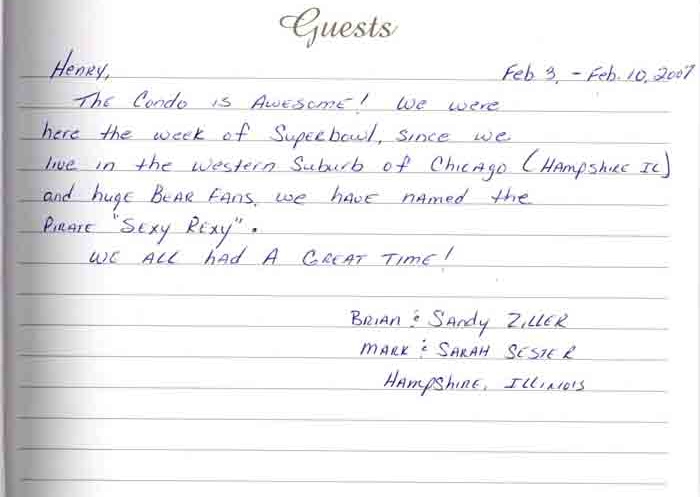 Guests
Henry, Feb 3, - Feb. 10, 2007
The Condo is Awesome! We were
here the week of Superbowl, since we
live in the western Suburb of Chicago (Hampshire IL)
and huge Bear Fans, we have named the
Pirate "Sexy Rexy".
We all had a Great Time!
Brian & Sandy Ziller
Mark & Sarah Sester
Hampshire, Illinois